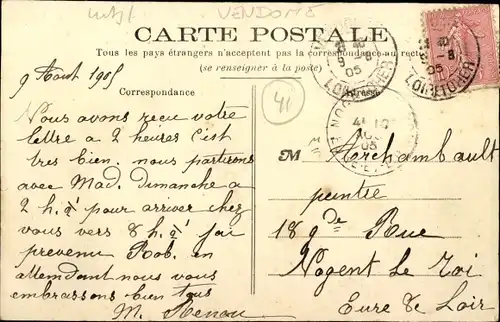 VENDOME
CARTE POSTALE
Tous les pays étrangers n'acceptent pas la correspondance au recto
(se renseigner à la poste)
Correspondance
Adresse
9 Aout 1905
Nous avons recu votre
lettre a 2 heures c'est
tres bien. nous partirons
avec Mad. Dimanche a
2 h. ½ pour arriver chez
vous vers 8 h. ½ j'ai
prevenu Rob. en
attendant nous vous
embrassons bien tous
M. Renou
41
LOIR-ET-CHER
05
LOIR-ET-CHER
05
NOGENT
05
M Archambault
peintre
18 gde Rue
Nogent Le Roi
Eure & Loir